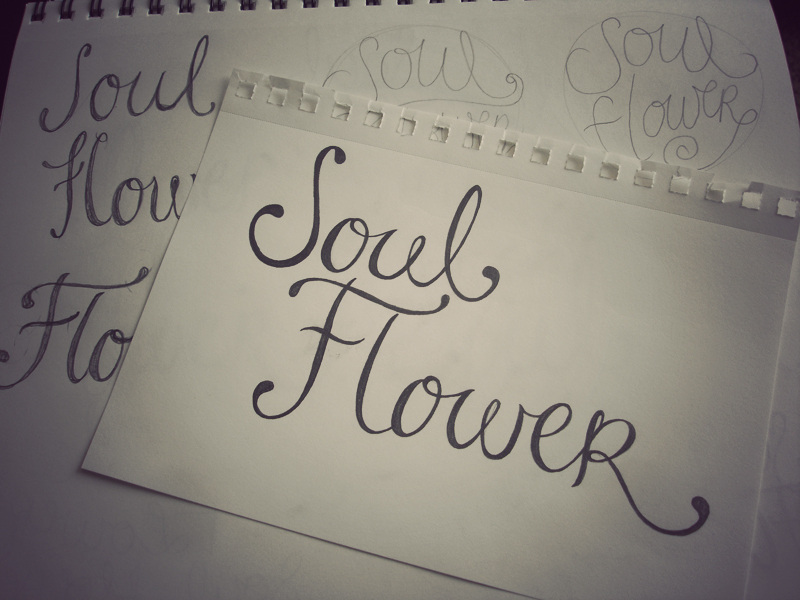 Soul
Flow
Flo
Soul
Soul
flower
Soul
FloweR